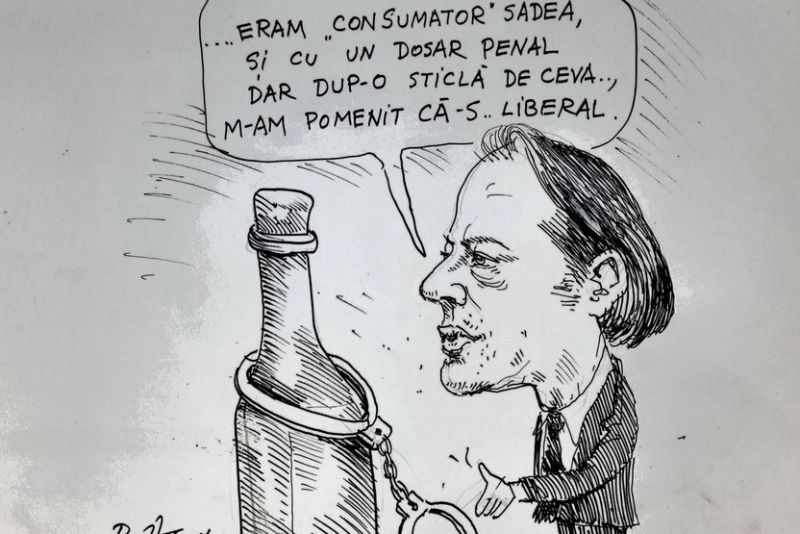 ....ERAM „CONSUMATOR" SADEA,
ȘI CU UN DOSAR PENAL
DAR DUP-O STICLĂ DE CEVA..,
M-AM POMENIT CĂ-S.. LIBERAL.